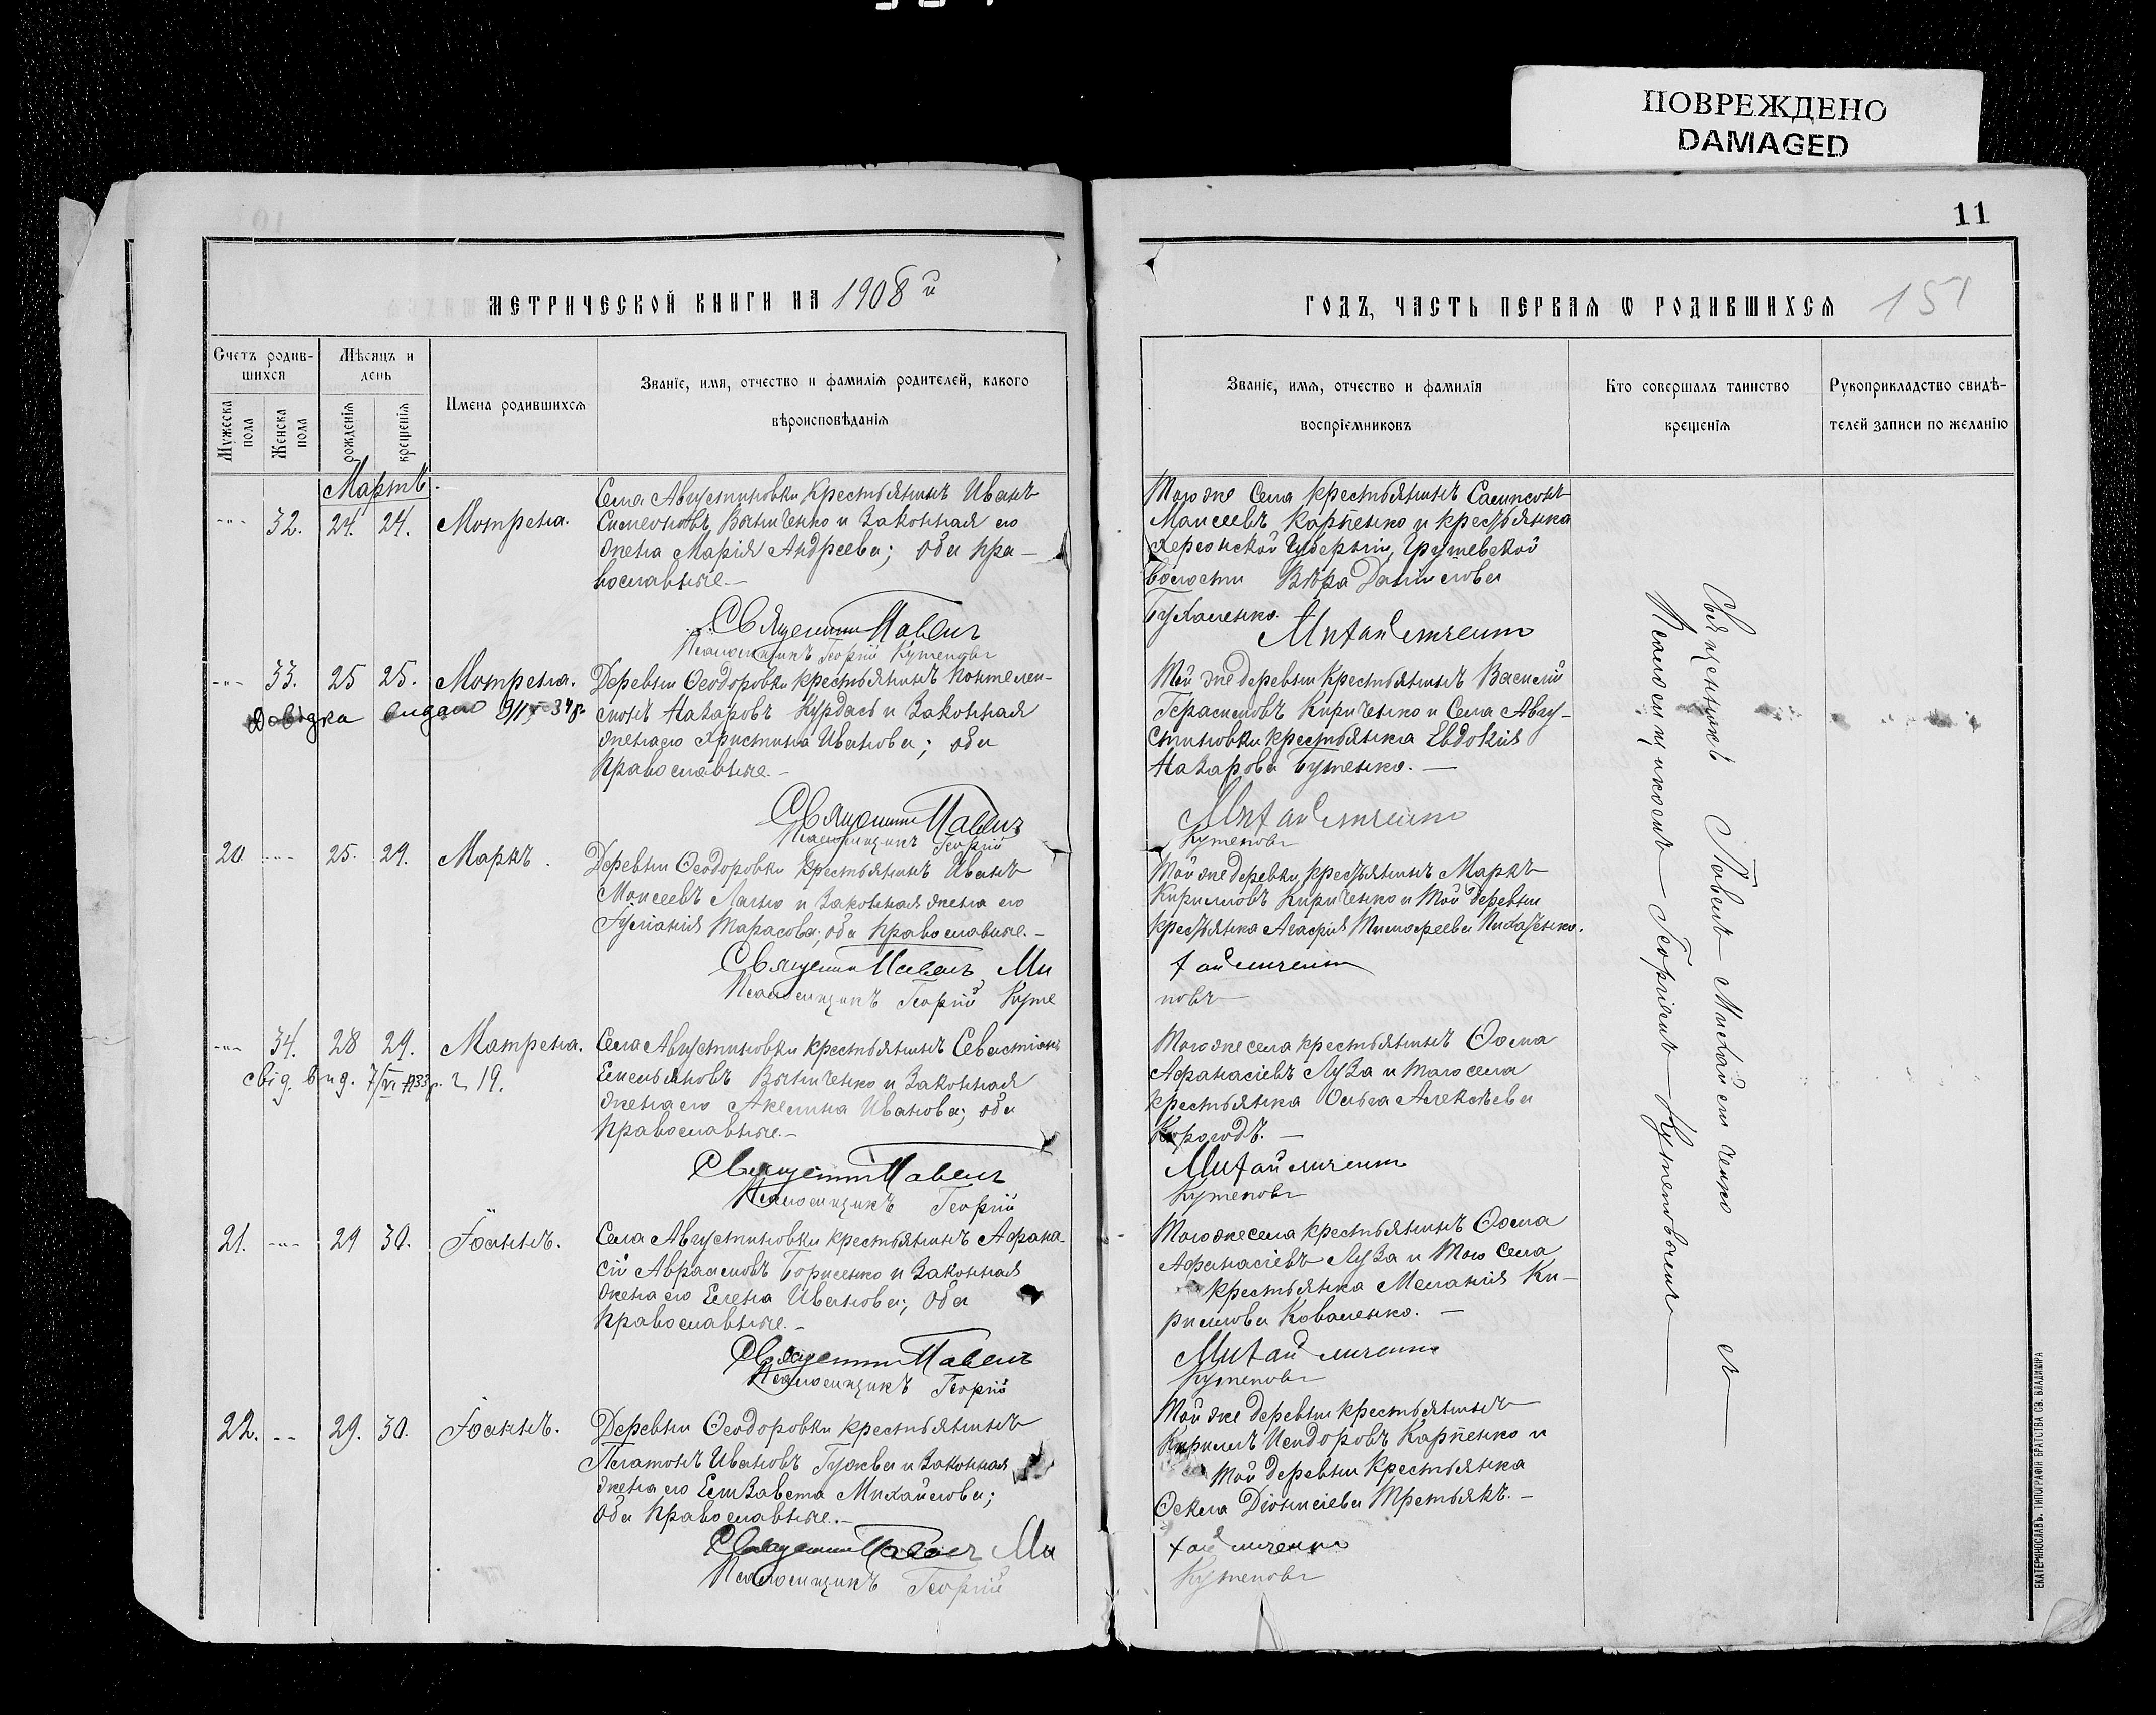 ПОВРЕЖДЕНО
DAMAGED
11
МЕТРИЧЕСКОЙ КНИГИ НА 1908 й
ГОДЪ, ЧАСТЬ ПЕРВАЯ Ѡ РОДИВШИХСЯ
151
Счетъ родив-
шихся
Мужеска
пола
Женска
пола
Мѣсяцъ и
день
рожденія
крещенія
Имена родившихся
Званіе, имя, отчество и фамилія родителей, какого
вѣроисповѣданія
Званіе, имя, отчество и фамилія
воспріемниковъ
Кто совершалъ таинство
крещенія
Рукоприкладство свидѣ-
телей записи по желанію
Мартъ.
32. 24. 24. Мотрена.
Села Августиновки крестьянинъ Иванъ
Симеоновъ Винниченко и законная его
жена Марія Андреева; оба пра-
вославные.—
Священникъ Павелъ
Псаломщикъ Георгій Кутеповъ
Того же села крестьянинъ Сампсонъ
Моисеевъ Карпенко и крестьянка
Херсонской Губерніи, Грушевской
волости Вѣра Даниилова
Михайличенко
33. 25 25. Мотрена.
Довідка видано
Деревни Ѳеодоровки крестьянинъ Пантелеи-
монъ Назаровъ Курдасъ и законная
жена его Христина Иванова; оба
Православные.—
Священникъ Павелъ
Псаломщикъ Георгій
Той же деревни крестьянинъ Василій
Герасимовъ Кириченко и Села Авгу-
стиновки крестьянка Евдокія
Назарова Бутенко.—
Михайличенко
Кутеповъ
20 25. 29. Маркъ.
Деревни Ѳеодоровки крестьянинъ Иванъ
Моисеевъ и законная жена его
Іуліанія Тарасова; оба православные.—
Священникъ Павелъ Ми
Псаломщикъ Георгій Куте
Той же деревни, крестьянинъ Маркъ
Кирилловъ Кириченко и той деревни
крестьянка Агафія Тимофеева
хайличенко
повъ
34. 28 29. Матрена.
свід. вид. 7/VI 1933 р. 19.
Села Августиновки крестьянинъ Севастіанъ
Емельяновъ Винниченко и законная
жена его Акелина Иванова; оба
Православные.—
Священникъ Павелъ
Псаломщикъ Георгій
Того же села крестьянинъ Ѳома
Афанасіевъ Луза и того села
крестьянка Ольга Алексѣева
Михайличенко
Кутеповъ
21. 29 30. Іоаннъ.
Села Августиновки крестьянинъ Афана-
сій Авраамовъ Борисенко и законная
жена его Елена Иванова; оба
Православные.—
Священникъ Павелъ
Псаломщикъ Георгій
Того же села крестьянинъ Ѳома
Афанасіевъ Луза и того села
крестьянка Меланія Ки-
риллова Коваленко.—
Михайличенко
Кутеповъ
22. 29. 30. Іоаннъ.
Деревни Ѳеодоровки крестьянинъ
Платонъ Ивановъ Гужва и законная
жена его Елизавета Михайлова;
оба Православные.—
Священникъ Павелъ Ми
Псаломщикъ Георгій
Той же деревни крестьянинъ
Кириллъ Исидоровъ Карпенко и
той деревни крестьянка
Ѳекла Діонисіева Третьякъ.—
хайличенко
Кутеповъ
Священникъ Павелъ Михайличенко
съ
Псаломщикомъ Георгіемъ Кутеповымъ
ЕКАТЕРИНОСЛАВЪ. ТИПОГРАФІЯ БРАТСТВА СВ. ВЛАДИМІРА